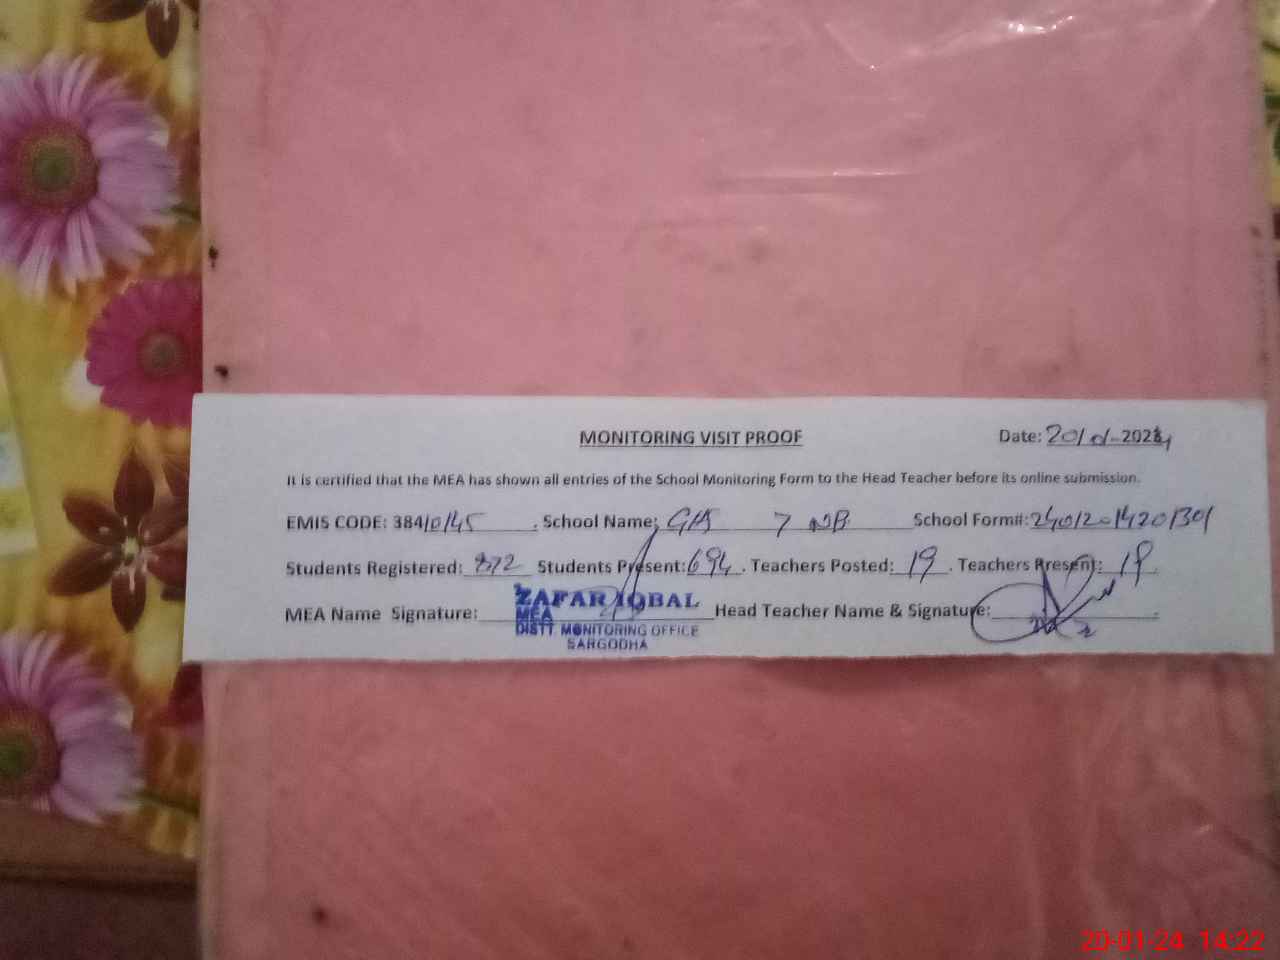 MONITORING VISIT PROOF Date: 20/01-2024
It is certified that the MEA has shown all entries of the School Monitoring Form to the Head Teacher before its online submission.
EMIS CODE: 38410145. School Name: GHS 7 NB School Form#: 24012014201301
Students Registered: 872 Students Present: 694. Teachers Posted: 19. Teachers Present: 19.
MEA Name Signature: Head Teacher Name & Signature:
ZAFAR IQBAL
MEA
DISTT MONITORING OFFICE
SARGODHA
20-01-24 14:22